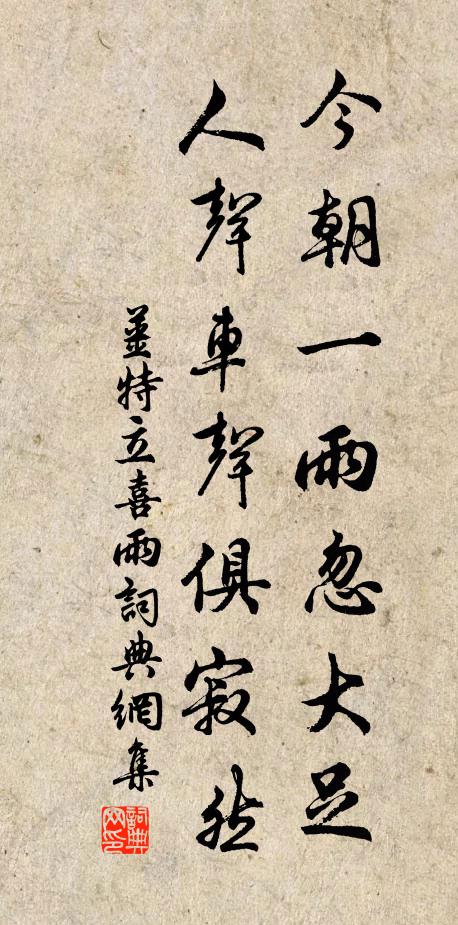 今朝一雨忽大足
人聲車聲俱寂然
姜特立喜雨詞典網集
詞典網印